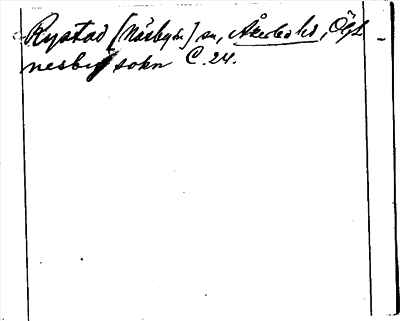 Rystad [Näsby sn] sn, Åkerbo hd, Ögl
nesby sokn C. 24.